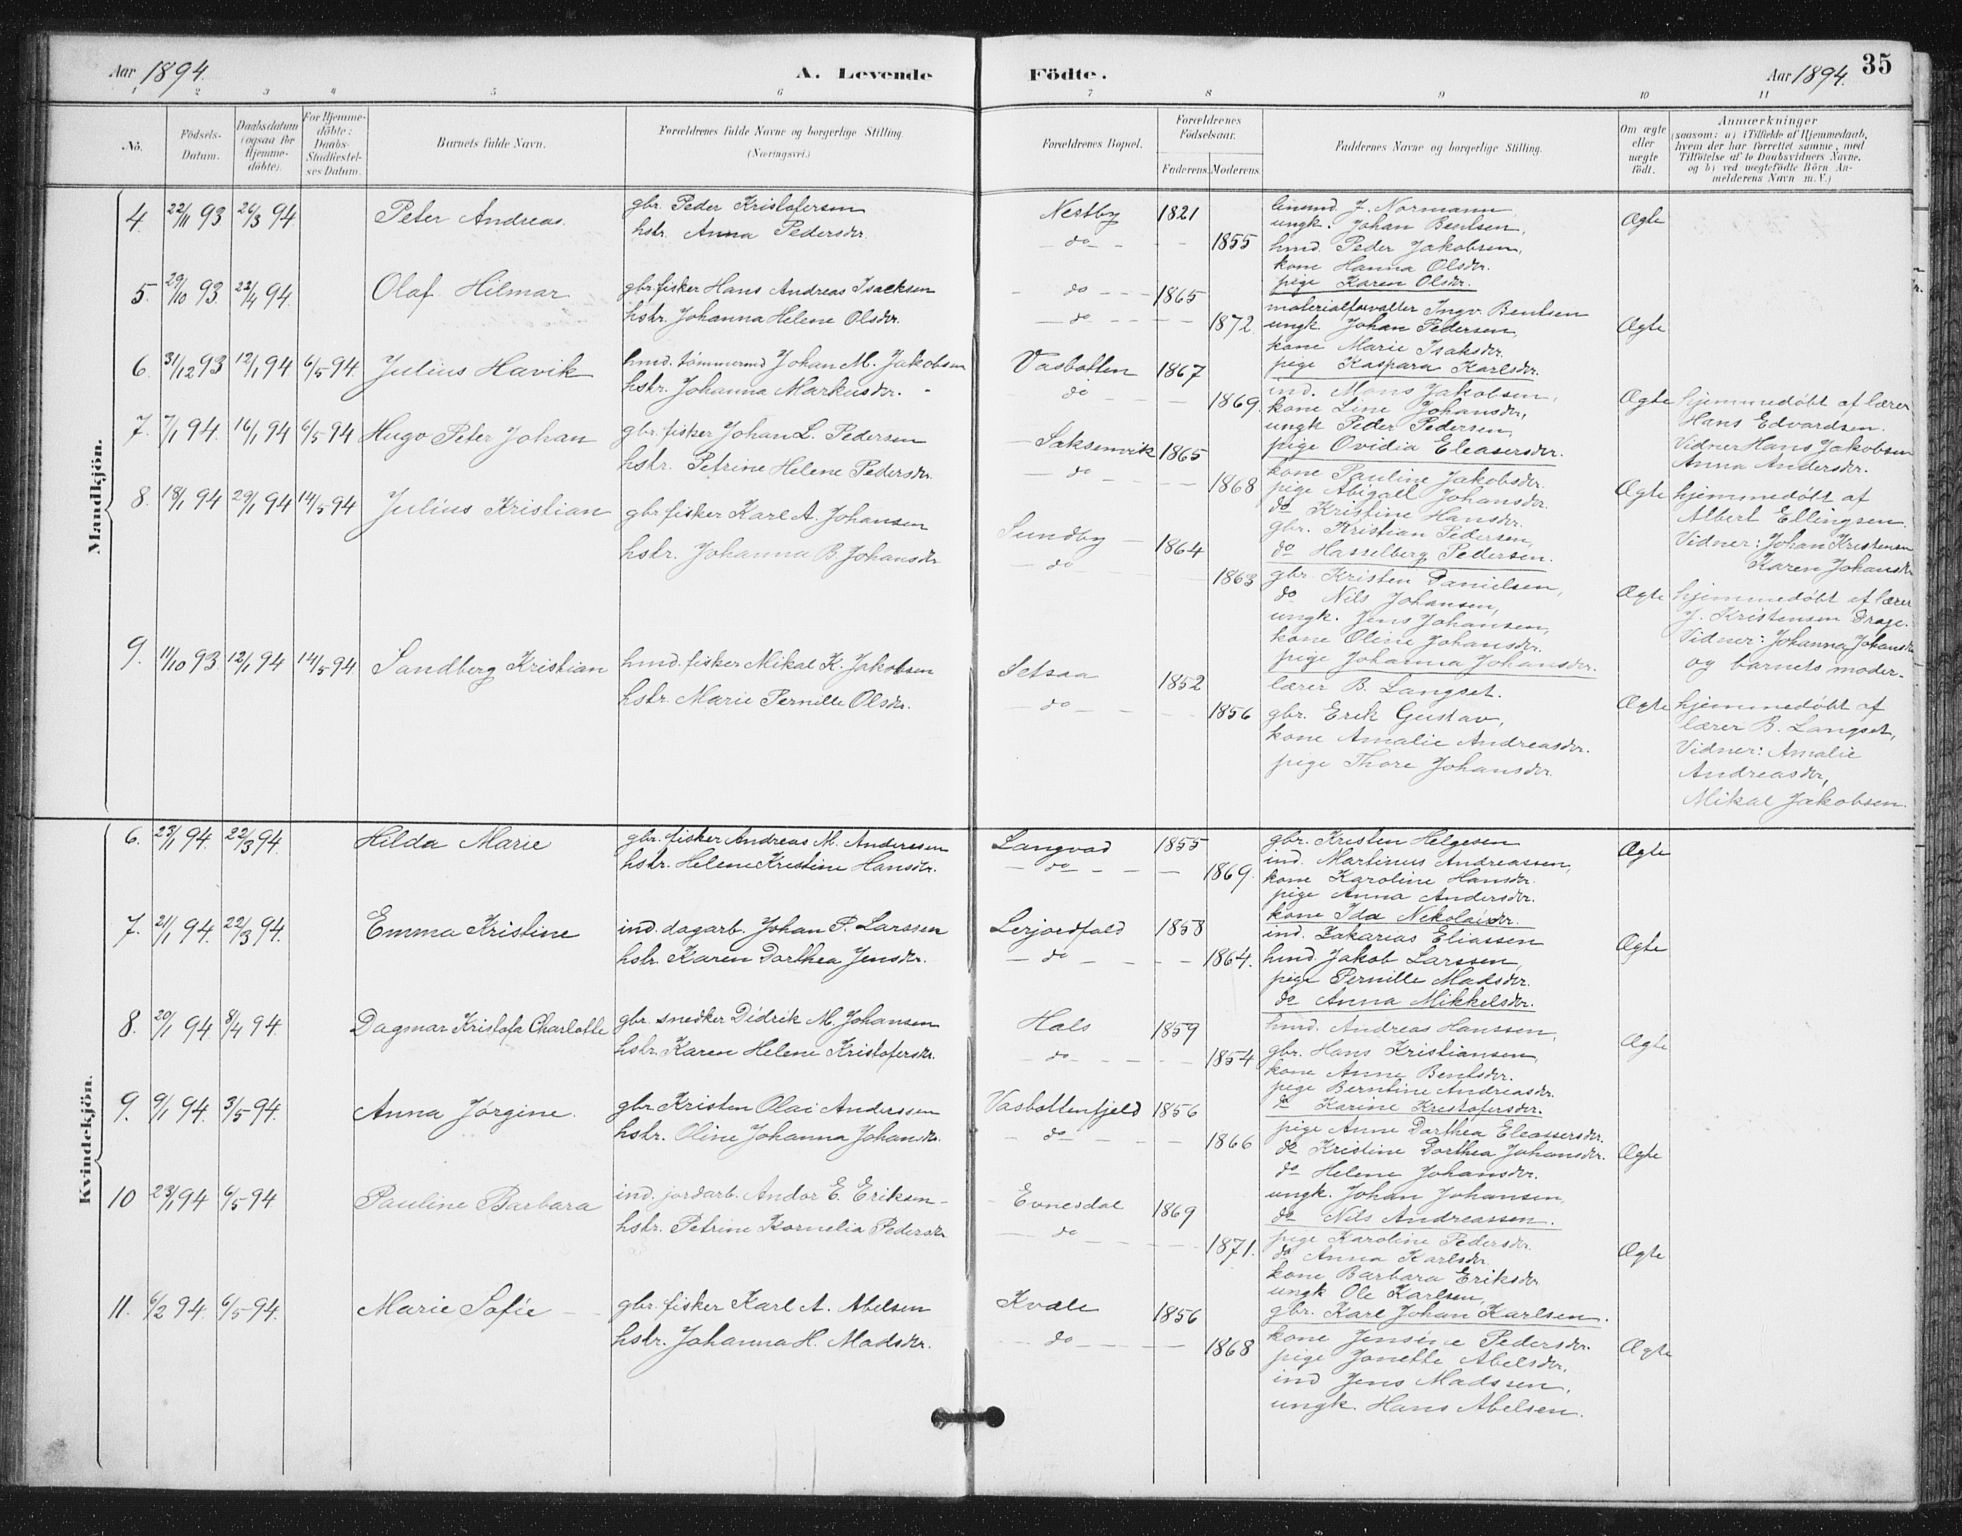 Aar 1894. A. Levende Födte. Aar 1894. 35
1 2 3 4 5 6 7 8 9 10 11
No. Födsels-Datum. Daabsdatum (ogsaa for Hjemme-döbte). For Hjemme-döbte: Daabs-Stadfæstel-ses Datum. Barnets fulde Navn. Forældrenes fulde Navne og borgerlige Stilling. (Næringsvei.) Forældrenes Bopæl. Forældrenes Födselsaar. Faderens. Moderens. Faddernes Navne og borgerlige Stilling. Om ægte eller uægte födt. Anmærkninger (saasom: a) i Tilfælde af Hjemmedaab, hvem der har forrettet samme, med Tilföielse af to Daabsvidners Navne, og b) ved uægtefödte Börn Anmelderens Navn m. V.)
Mandkjön.
4. 22/11 93 26/3 94 Peter Andreas. gbr. Peder Kristofersen Nestby 1821 J. Normann Ægte
hstr. Anna Pedersdr. do 1855 ungk. Johan Bentsen,
hmd. Peder Jakobsen,
kone Hanna Olsdr.
pige Karen Olsdr.
5. 29/10 93. 22/4 94. Olaf Hilmar gbr. fisker Hans Andreas Isachsen do 1865 materialforvalter Ingv. Bentsen
hstr. Johanna Helene Olsdr. do 1872. ungk Johan Pedersen, Ægte
kone Marie Isaksdr.
pige Kaspara Karlsdr.
6. 31/12 93 12/1 94 6/5 94. Julius Havik hmd. tømmermd Johan M. Jakobsen Vasbotten 1867
hstr. Johanna Markusdr. do 1869. ind. Mons Jakobsen, Ægte hjemmedøbt af lærer
kone Line Johansdr, Hans Edvardsen.
ungk Peder Pedersen, Vidner Hans Jakobsen
pige Ovidia Eleasersdr. Anna Andersdr.
7. 7/1 94. 16/1 94 6/5 94 Hugo Peter Johan gbr. fisker Johan L. Pedersen Saksenvik 1865
hstr. Petrine Helene Pedersdr. do 1868 kone Pauline Jakobsdr. Ægte hjemmedøbt af
pige Abigael Johansdr. Albert Ellingsen.
do Kristine Hansdr. Vidner: Johan Kristensen
gbr. Kristian Pedersen, Karen Johansdr
do Hasselberg Pedersen.
8. 18/1 94 29/1 94 14/5 94 Julius Kristian gbr fisker Karl A. Johansen Sundby 1864
hstr. Johanna B. Johansdr do 1863 gbr. Kristen Danielsen, Ægte hjemmedøbt af lærer
do Nils Johansen, J. Kristensen Drage.
ungk. Jens Johansen, Vidner: Johanna Johansdr
kone Oline Johansdr. og barnets moder.
pige Johanna Johansdr.
9. 11/10 93. 12/1 94 14/5 94 Sandberg Kristian hmd. fisker Mikal K. Jakobsen Setsaa 1852 lærer B. Langset.
hstr. Marie Pernille Olsdr. do 1856 gbr. Erik Gustav, Ægte hjemmedøbt af
kone Amalie Andreasdr. lærer B. Langset,
pige Thore Johansdr. Vidner: Amalie
Andreasdr,
Mikal Jakobsen.
Kvindekjön.
6. 23/1 94. 22/3 94. Hilda Marie gbr. fisker Andreas M. Andersen Langvad 1855 gbr. Kristen Helgesen Ægte
hstr. Helene Kristine Hansdr. do 1869. ind. Martinus Andreassen,
kone Karoline Hansdr.
pige Anna Andersdr.
kone Ida Nekolaidr.
7. 21/1 94. 22/3 94. Emma Kristine ind. dagarb. Johan P. Larssen Lerjordfald 1858 ind. Zakarias Eliassen Ægte
hstr. Karen Dorthea Jensdr. do 1864. hmd. Jakob Larssen,
pige Pernille Madsdr.
do Anna Mikkelsdr.
8. 20/1 94 8/4 94. Dagmar Kristofa Charlotte gbr. snedker Didrik M. Johansen Hals 1859 hmd. Andreas Hanssen, Ægte
hstr. Karen Helene Kristofersdr. do 1854 gbr. Hans Kristiansen,
kone Anne Bentsdr.
pige Berntine Andreasdr.
do Karine Krestofersdr.
9. 9/1 94. 3/5 94. Anna Jørgine. gbr. Kristen Olai Anderssen Vasbottenfjeld 1856 pige Anne Dorthea Eleasersdr.
hstr. Oline Johanna Johansdr. do 1866 do Kristine Dorthea Johansdr. Ægte
do Helene Johansdr.
ungk. Johan Johansen,
do Nils Andreassen.
10 23/1 94 6/5 94 Pauline Barbara ind. jordarb. Andor E. Eriksen Evnesdal 1869
hstr. Petrine Kornelia Pedersdr. do 1871. pige Karoline Pedersdr. Ægte
do Anna Karlsdr.
kone Barbara Eriksdr
ungk Ole Karlsen,
gbr. Karl Johan Karlsen.
11. 6/2 94. 6/5 94. Marie Sofie gbr. fisker Karl A. Abelsen Kvæle 1856
hstr. Johanna H. Madsdr. do 1868 kone Jensine Pedersdr. Ægte
pige Jonette Abelsdr.
ind Jens Madssen,
ungk. Hans Abelsen.